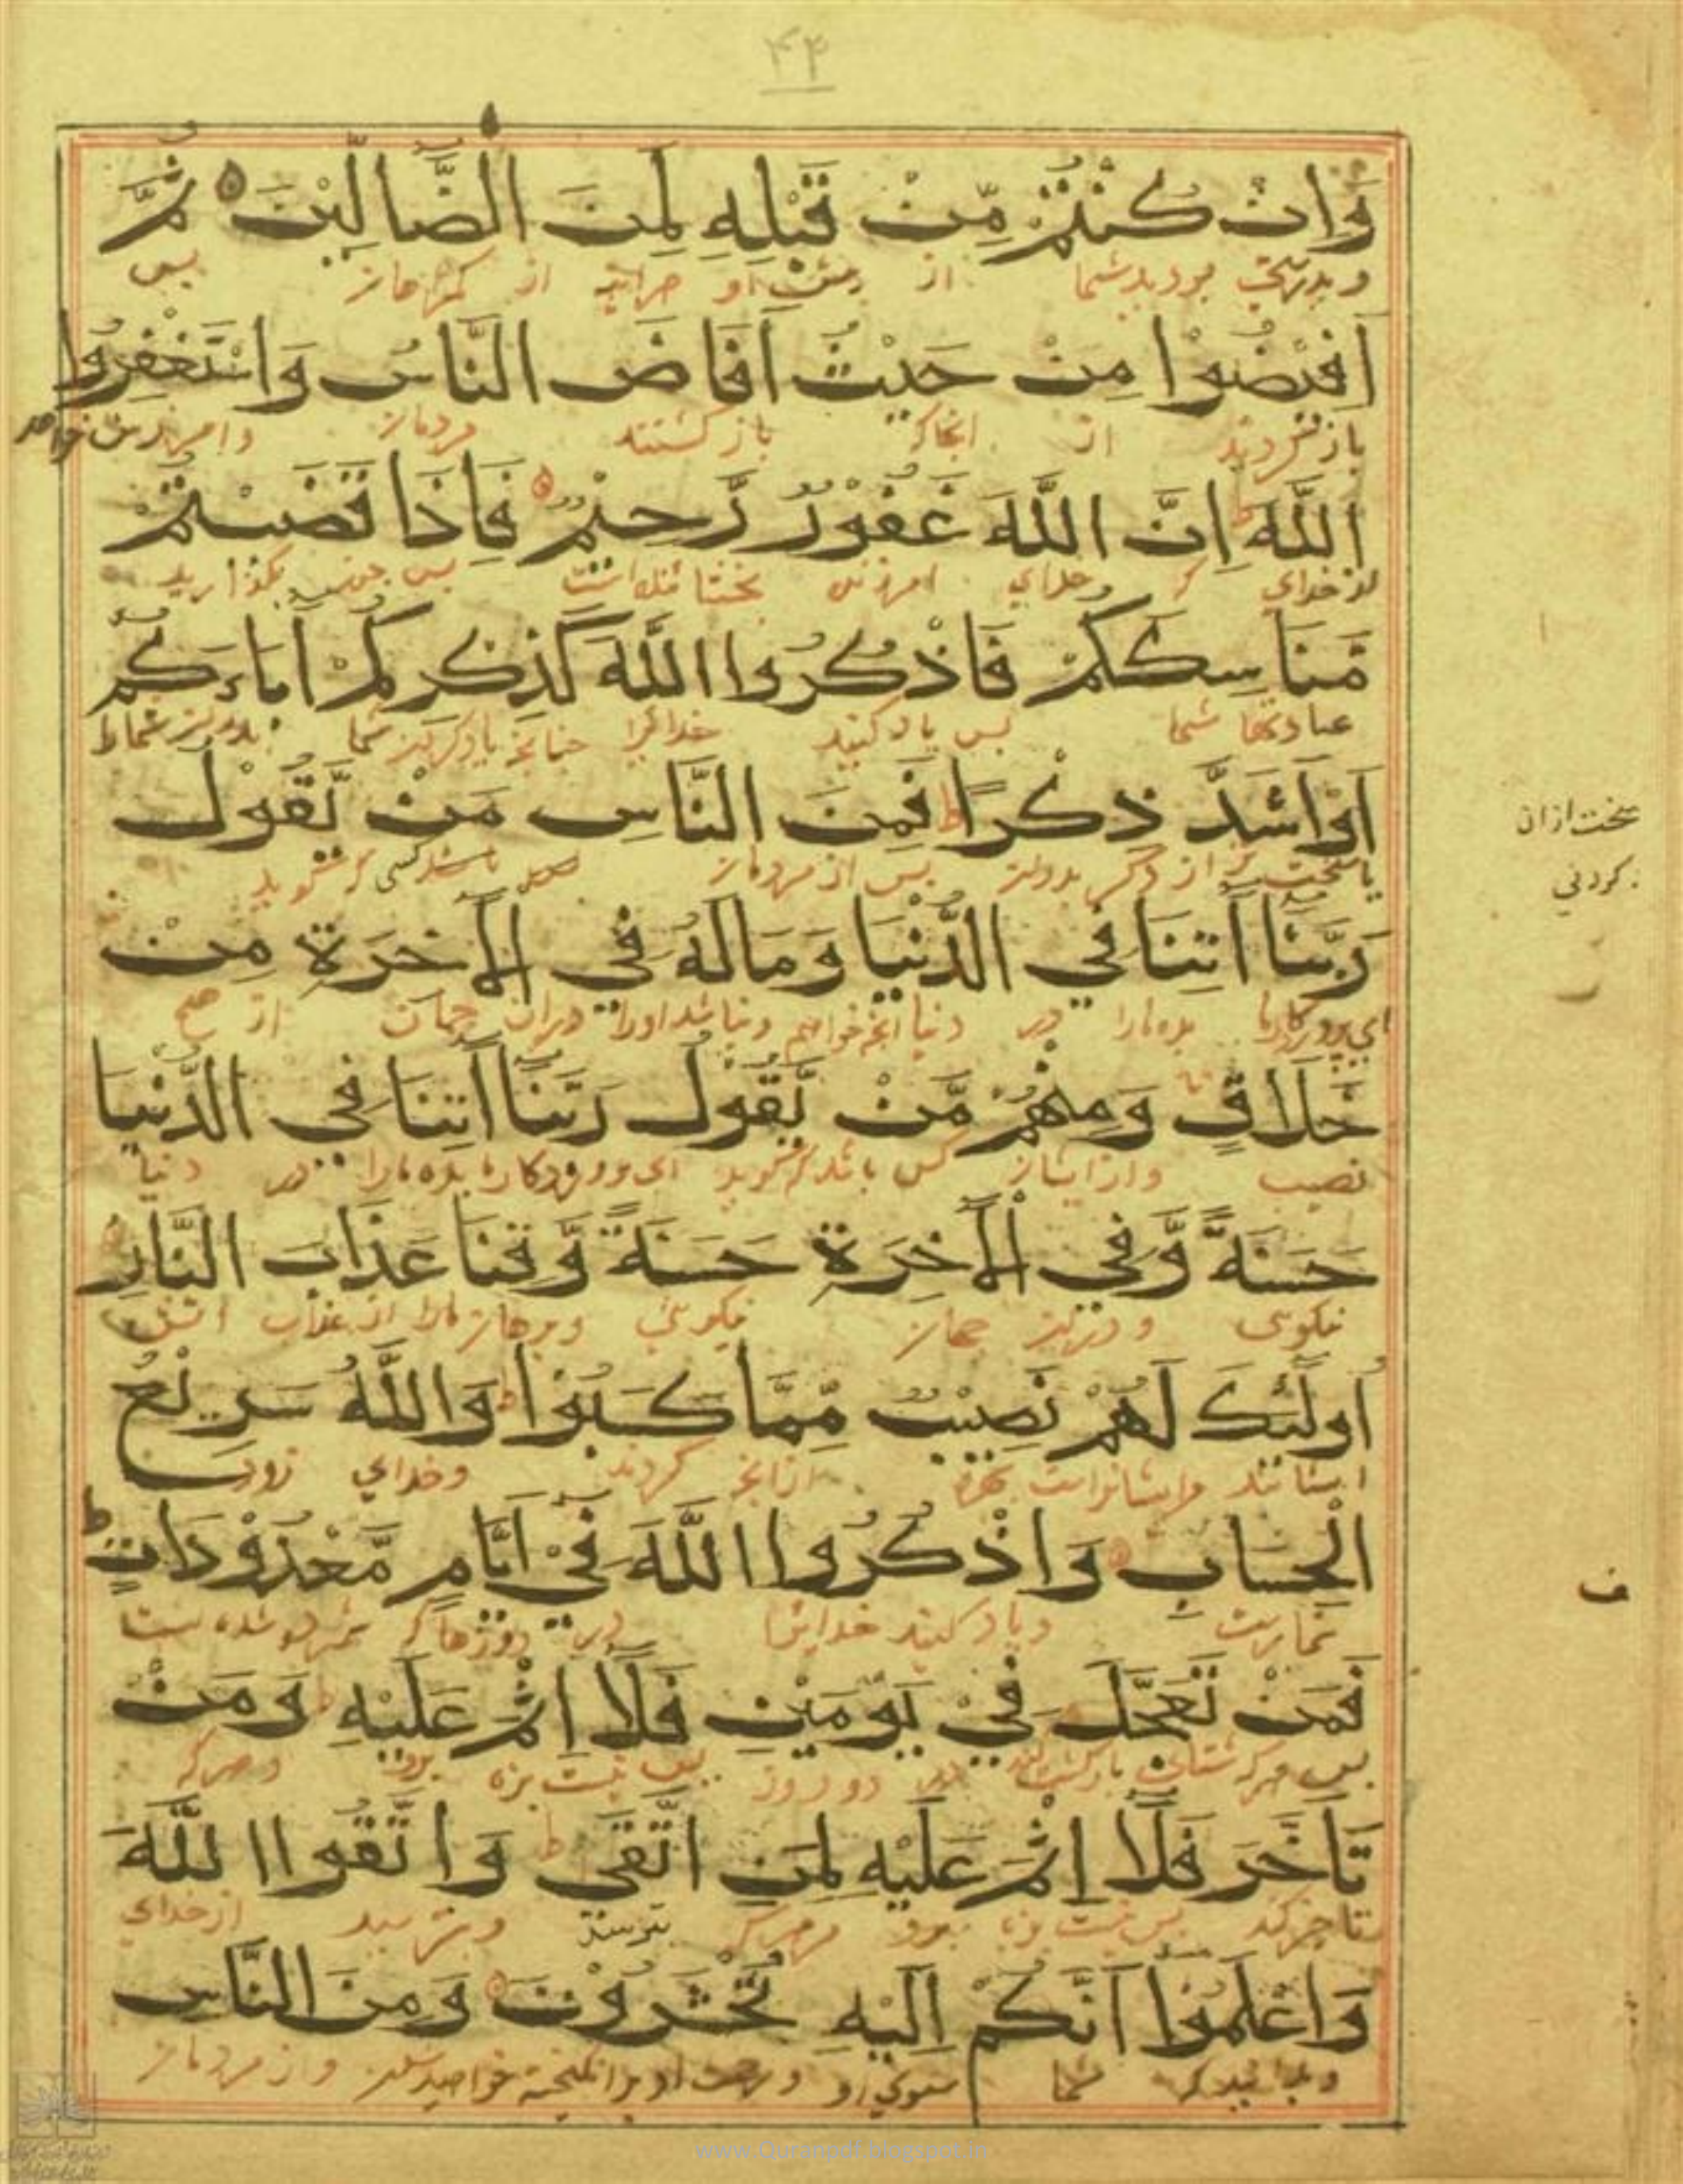 ۴۴
وَاِنْ كُنْتُمْ مِّنْ قَبْلِهِ لَمِنَ الضَّالِّيْنَ ثُمَّ
و بدرستی بودید شما از پیش او هراینه از گمراهان پس
اَفِيْضُوْا مِنْ حَيْثُ اَفَاضَ النَّاسُ وَاسْتَغْفِرُوا
باز گردید از انجاکه باز گشتند مردمان و امرزش خواهید
اللّٰهَ ط اِنَّ اللّٰهَ غَفُوْرٌ رَّحِيْمٌ فَاِذَا قَضَيْتُمْ
از خدای که خدای امرزنده بخشاینده است پس چون بگذارید
مَّنَاسِكَكُمْ فَاذْكُرُوا اللّٰهَ كَذِكْرِكُمْ آبَاءَكُمْ
عبادتها شما پس یاد کنید خدایرا چنانچه یاد کردن شما پدران شما
اَوْ اَشَدَّ ذِكْرًا ط فَمِنَ النَّاسِ مَنْ يَّقُوْلُ
یا سخت تر از ذکر پدران پس از مردمان کسی که میگوید
سخت از ان
کردنی
رَبَّنَا آتِنَا فِي الدُّنْيَا وَمَا لَهُ فِي الْآخِرَةِ مِنْ
ای پروردگار ما بده مارا در دنیا انچه خواهیم و نباشد اورا در ان جهان از هیچ
خَلَاقٍ وَمِنْهُمْ مَّنْ يَّقُوْلُ رَبَّنَا آتِنَا فِي الدُّنْيَا
نصیب و از ایشان کس باشد که میگوید ای پروردگار ما بده مارا در دنیا
حَسَنَةً وَّفِي الْآخِرَةِ حَسَنَةً وَّقِنَا عَذَابَ النَّارِ
نیکویی و در ان جهان نیکویی و برهان مارا از عذاب اتش
اُولٰئِكَ لَهُمْ نَصِيْبٌ مِّمَّا كَسَبُوْا ط وَاللّٰهُ سَرِيْعُ
ایشانند مر ایشانراست بهره از انچه کردند و خدای زود
الْحِسَابِ وَاذْكُرُوا اللّٰهَ فِيْ اَيَّامٍ مَّعْدُوْدَاتٍ ط
و یاد کنید خدایرا در روزها که شمرده شده است
ف
فَمَنْ تَعَجَّلَ فِيْ يَوْمَيْنِ فَلَا اِثْمَ عَلَيْهِ ط وَمَنْ
پس هر که شتاب در دو روز پس نیست بزه برو و هر که
تَاَخَّرَ فَلَا اِثْمَ عَلَيْهِ لِمَنِ اتَّقٰى ط وَاتَّقُوا اللّٰهَ
تاخیر کند پس نیست بزه برو مر هر که بترسد و بترسید از خدای
وَاعْلَمُوْا اَنَّكُمْ اِلَيْهِ تُحْشَرُوْنَ وَمِنَ النَّاسِ
و بدانید که شما سوی او برانگیخته خواهید شد و از مردمان
www.Quranpdf.blogspot.in